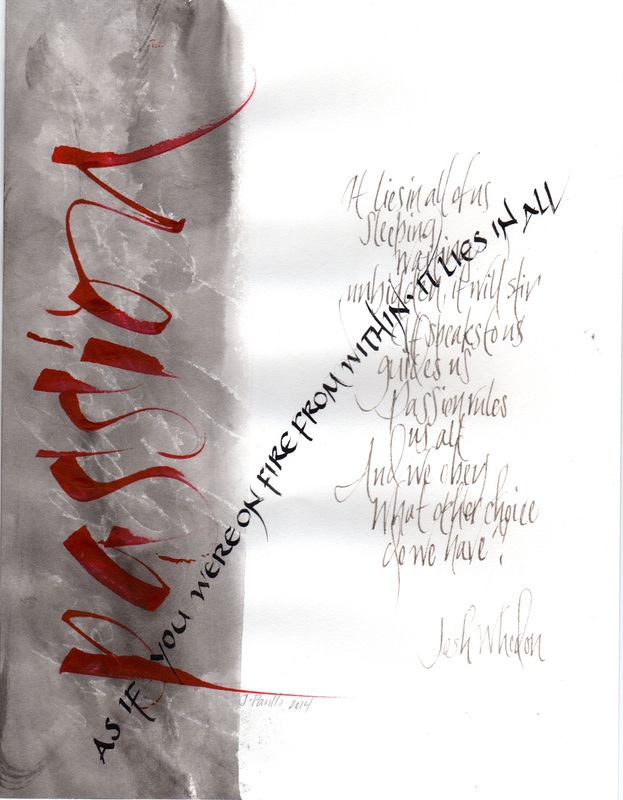 passion
AS IF YOU WERE ON FIRE FROM WITHIN. IT LIES IN ALL
It lies in all of us
Sleeping,
waiting
unbidden, it will stir
It speaks to us
guides us
Passion rules
us all
And we obey
What other choice
do we have?
Josh Whedon
J. Parillo 2014